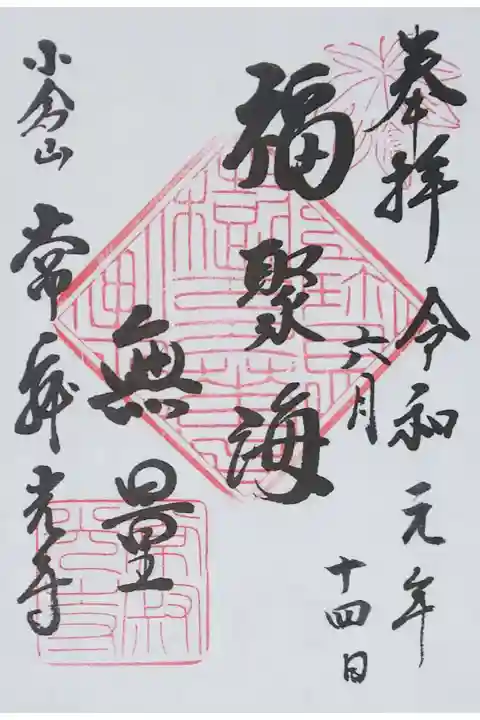 奉拝
令和元年
六月
十四日
福聚海
無量
小倉山
常寂光寺